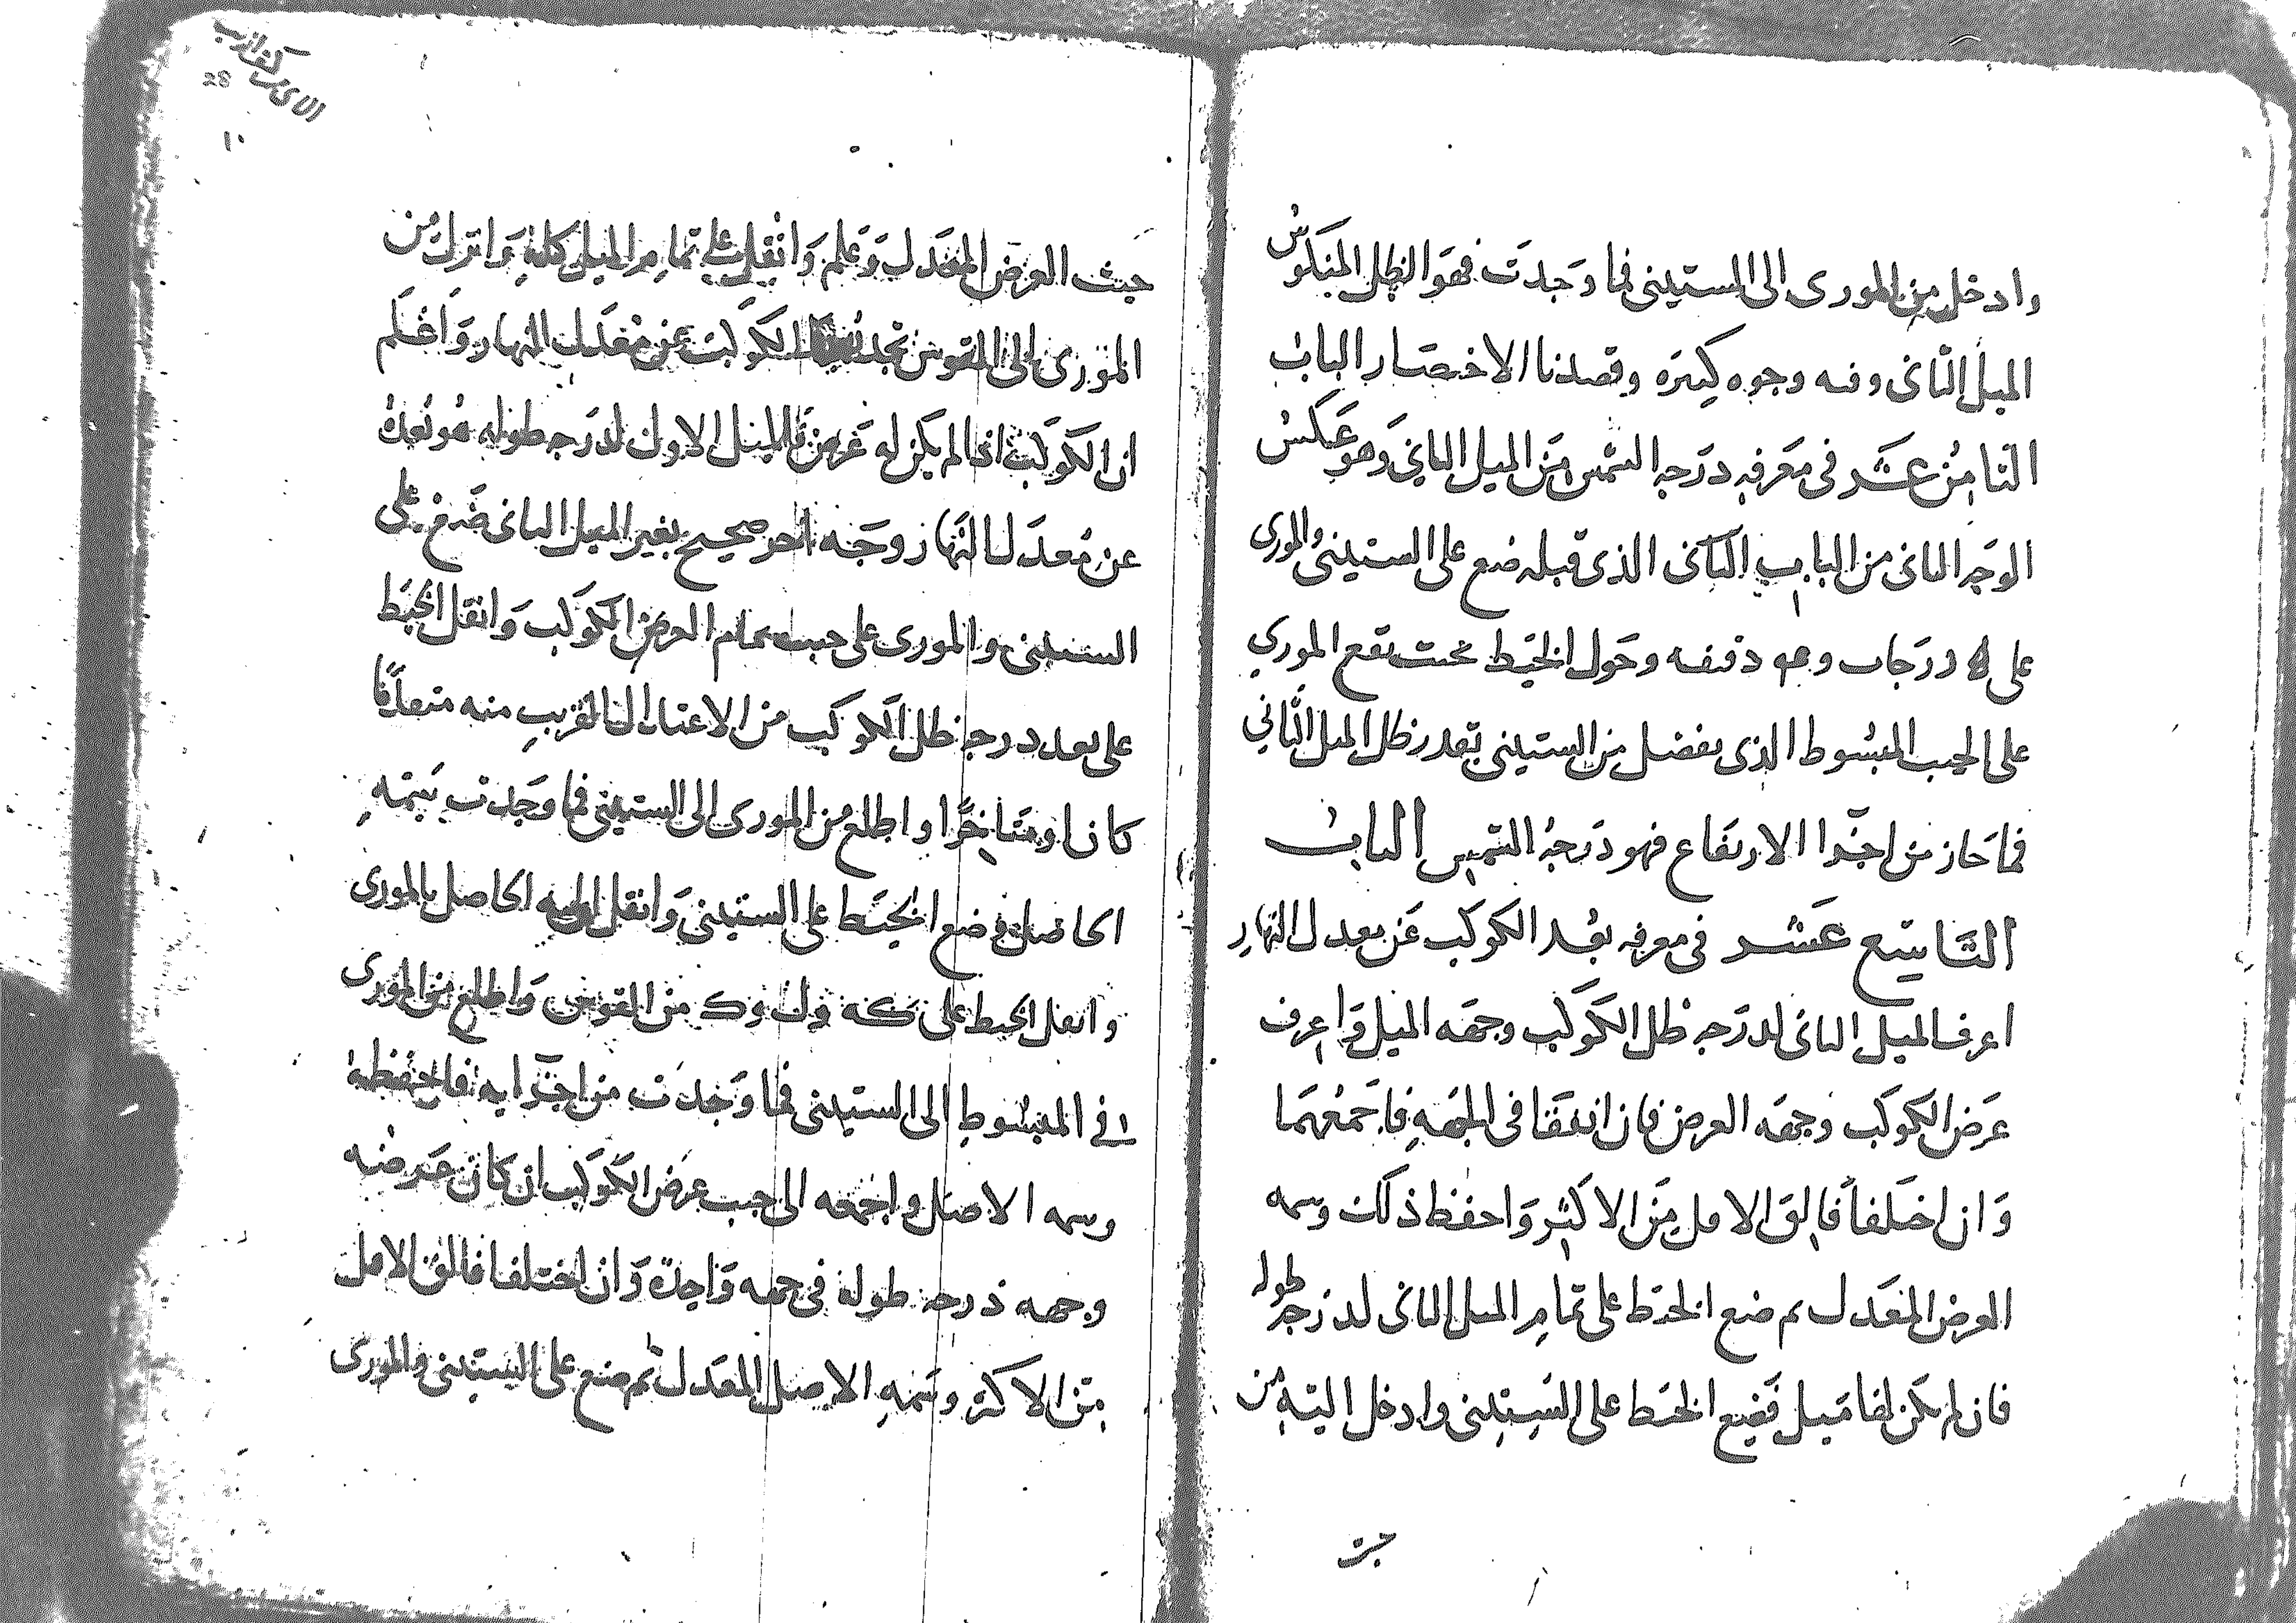 وادخل من المورى الى الستينى فما وجدت فهو الظل المنكوس
الميل الثانى وفيه وجوه كثيره وقصدنا الاختصار الباب
الثامن عشر فى معرفه درجه الشمس من الميل الثاني وهو عكس
الوجه الثانى من الباب الثانى الذى قبله ضع على الستينى والمورى
على درجات و دقيقه وحول الخيط بحيث يقع الموري
على الجيب المبسوط الذى يفصل من الستينى بقدر ظل الميل الثاني
فما حاز من اجزا الارتفاع فهو درجة الشمس الباب
التاسع عشر فى معرفه بعد الكوكب عن معدل النهار
اعرف الميل الثانى لدرجه ظل الكوكب وجهه الميل واعرف
عرض الكوكب وجهه العرض فان اتفقا فى الجهه فاجمعهما
وان اختلفا فالق الاقل من الاكثر واحفظ ذلك وسمه
العرض المعدل ثم ضع الخيط على تمام الميل الثانى لدرجه طوله
فان لم يكن لها ميل فضع الخيط على الستينى وادخل اليه من
جيب
28
١٠
حيث العرض المعدل وعلم وانقل على تمام الميل كله وانزل من
المورى الى القوس تجد بعد الكوكب عن معدل النهار واعلم
ان الكوكب اذا لم يكن له عرض فالميل الاول لدرجه طوله هو بعده
عن معدل النهار وجه اخر صحيح بغير الميل الثانى ضع على
الستينى والمورى على جيب تمام العرض الكوكب وانقل الخيط
على بعد درجه ظل الكوكب من الاعتدال القريب منه متقدما
كان او متاخرا واطلع من المورى الى الستينى فما وجدت سمه
الحاصل وضع الخيط على الستينى وانقل اليه الحاصل بالمورى
وانقل الخيط على من القوس واطلع من المورى
فى المبسوط الى الستينى فما وجدت من اجزايه فاحفظه
وسمه الاصل واجمعه الى جيب عرض الكوكب ان كان عرضه
وجهه درجه طوله فى جهه واحدة وان اختلفا فالق الاقل
من الاكثر وسمه الاصل المعدل ثم ضع على الستينى والمورى